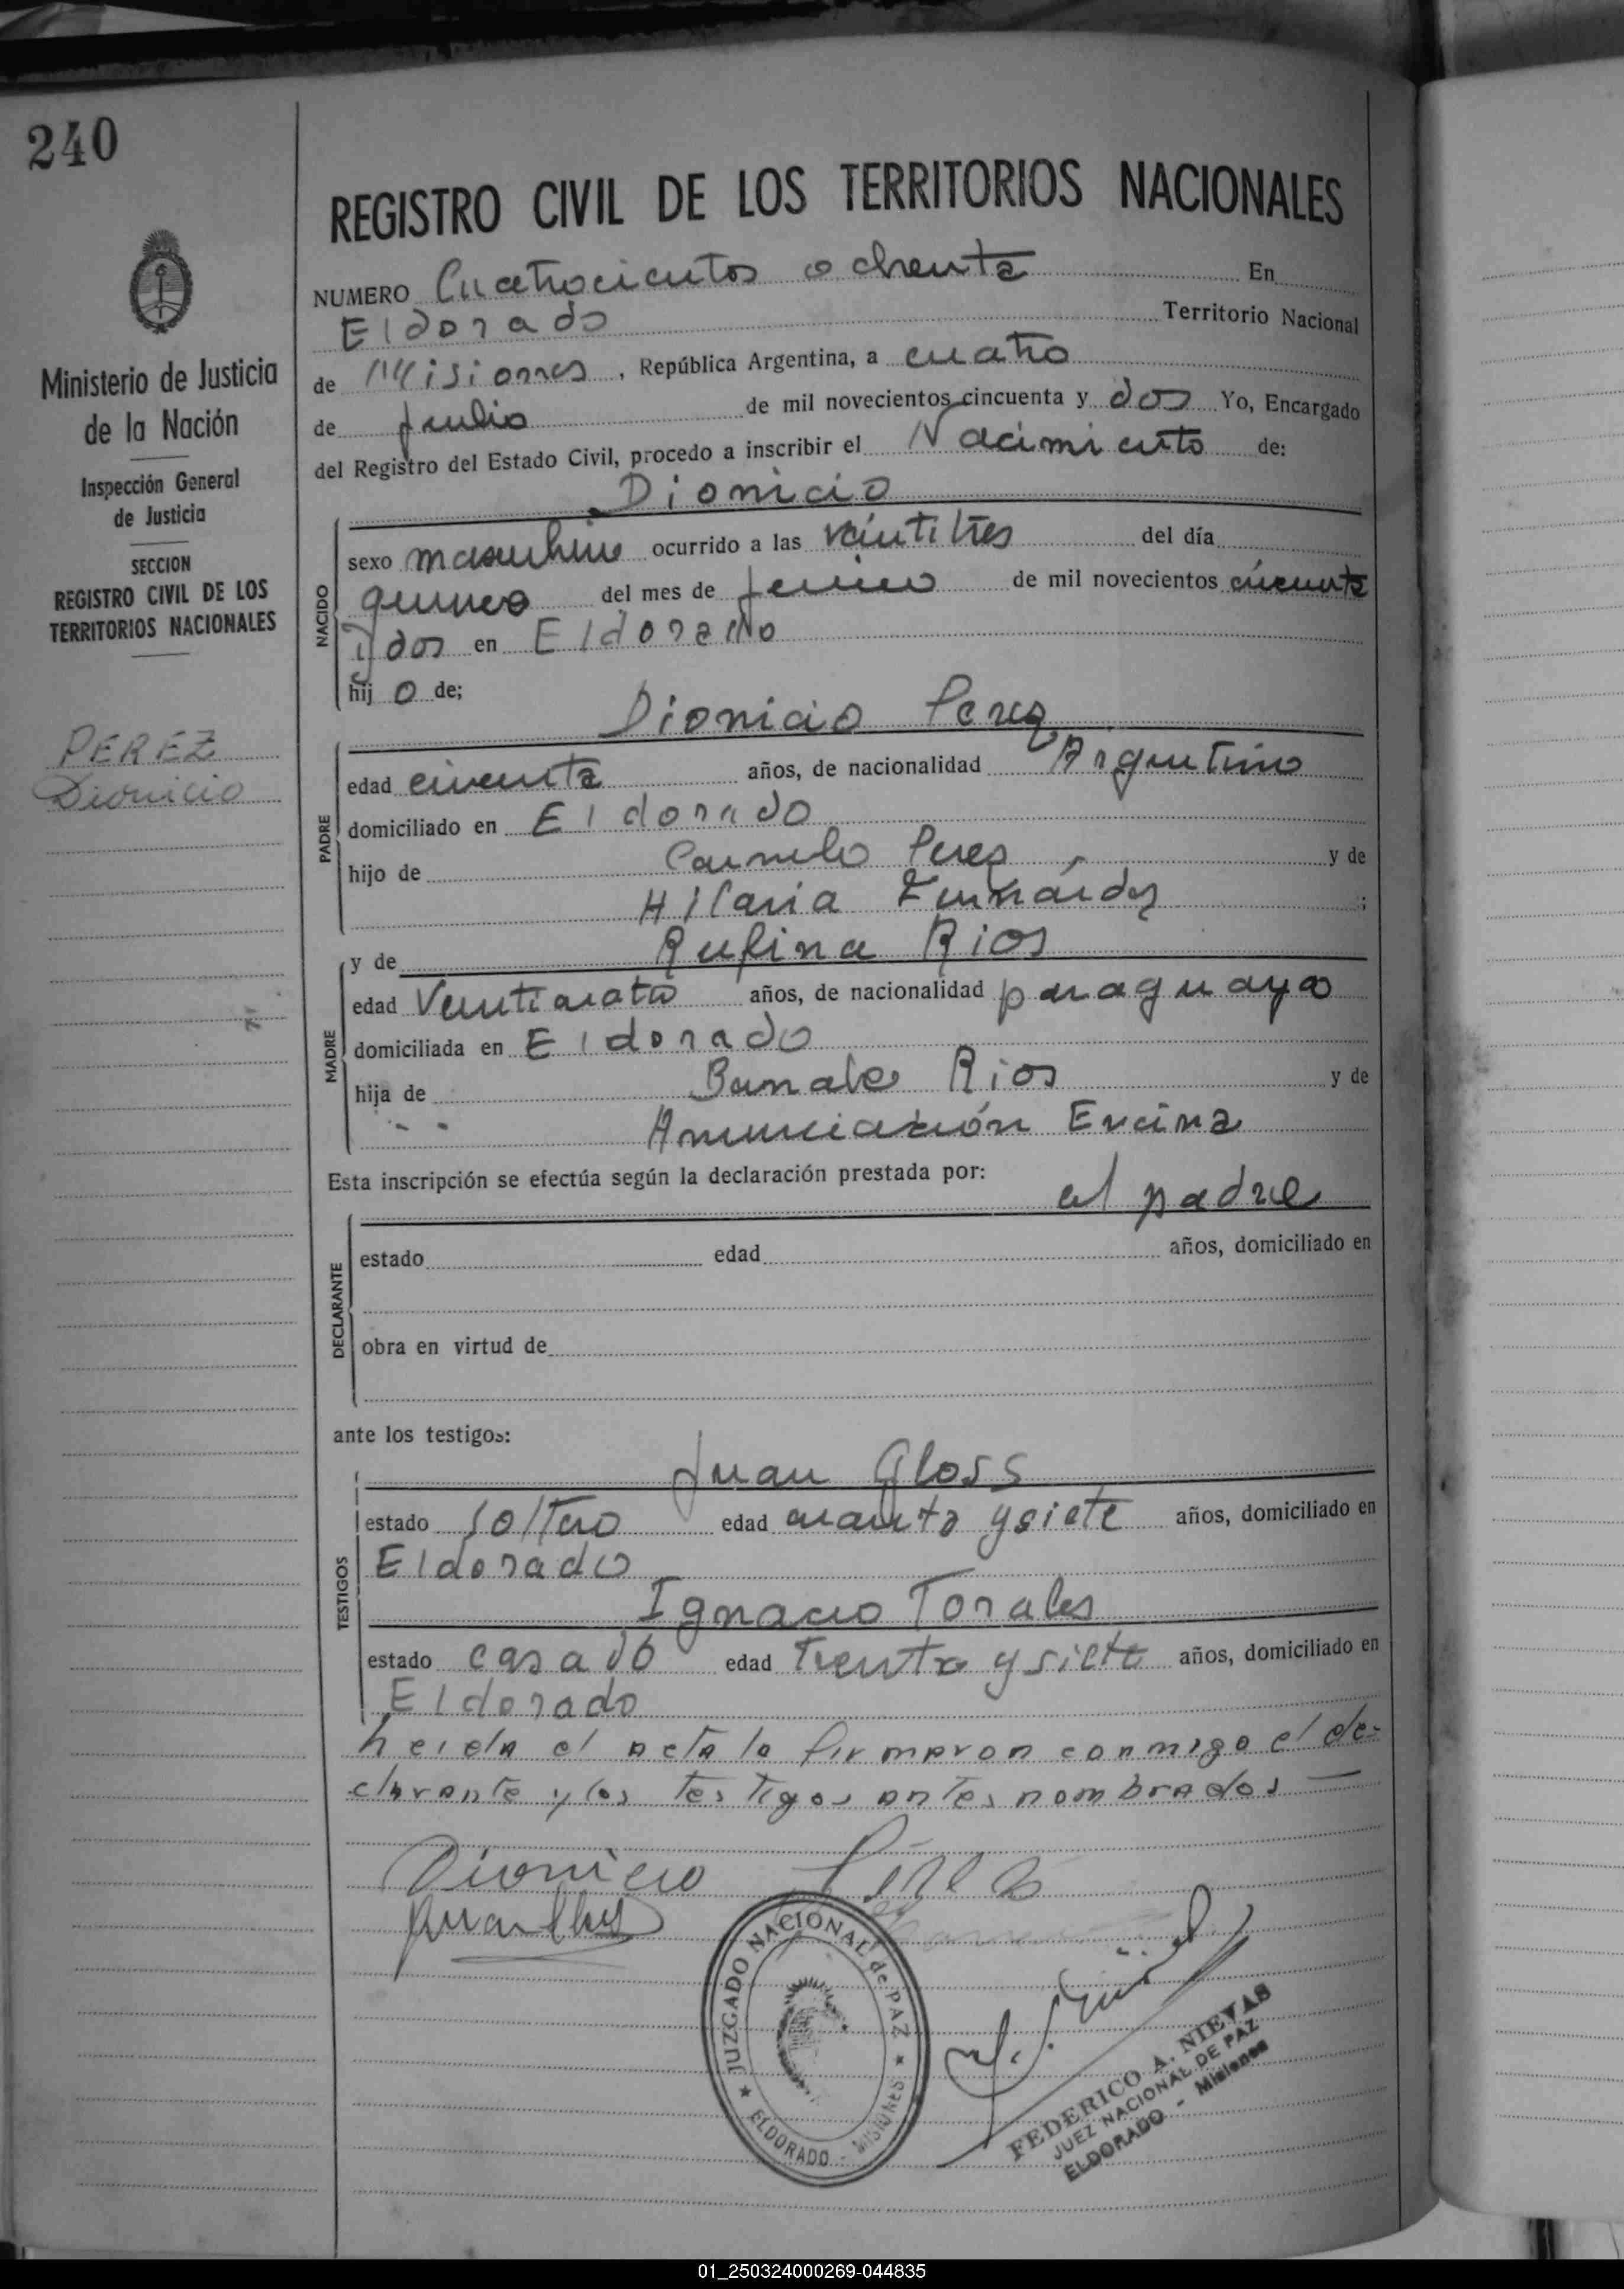 240
REGISTRO CIVIL DE LOS TERRITORIOS NACIONALES
NUMERO Cuatrocientos ochenta En
Eldorado Territorio Nacional
de Misiones, República Argentina, a cuatro
de Julio de mil novecientos cincuenta y dos Yo, Encargado
del Registro del Estado Civil, procedo a inscribir el Nacimiento de:
Dionicio
Ministerio de Justicia
de la Nación
Inspección General
de Justicia
SECCION
REGISTRO CIVIL DE LOS
TERRITORIOS NACIONALES
PEREZ
Dionicio
NACIDO
sexo masculino ocurrido a las veintitres del día
quince del mes de junio de mil novecientos cincuenta
y dos en Eldorado
hij o de;
Dionicio Perez
PADRE
edad cincuenta años, de nacionalidad Argentino
domiciliado en Eldorado
hijo de Carmelo Perez y de
Hilaria Fernández ;
MADRE
y de Rufina Rios
edad Venticuatro años, de nacionalidad paraguaya
domiciliada en Eldorado
hija de Rios y de
Anunciación Encina
Esta inscripción se efectúa según la declaración prestada por:
el padre
DECLARANTE
estado edad años, domiciliado en
obra en virtud de
ante los testigos:
Juan Gloss
TESTIGOS
estado Soltero edad cuarenta y siete años, domiciliado en
Eldorado
Ignacio Torales
estado casado edad Treinta y siete años, domiciliado en
Eldorado
Leida el acta la firmaron conmigo el de=
clarante y los testigos antes nombrados —
Dionicio Perez
Juan Gloss
JUZGADO NACIONAL de PAZ
★ ELDORADO - MISIONES ★
FEDERICO A. NIEVAS
JUEZ NACIONAL DE PAZ
ELDORADO - Misiones
01_250324000269-044835